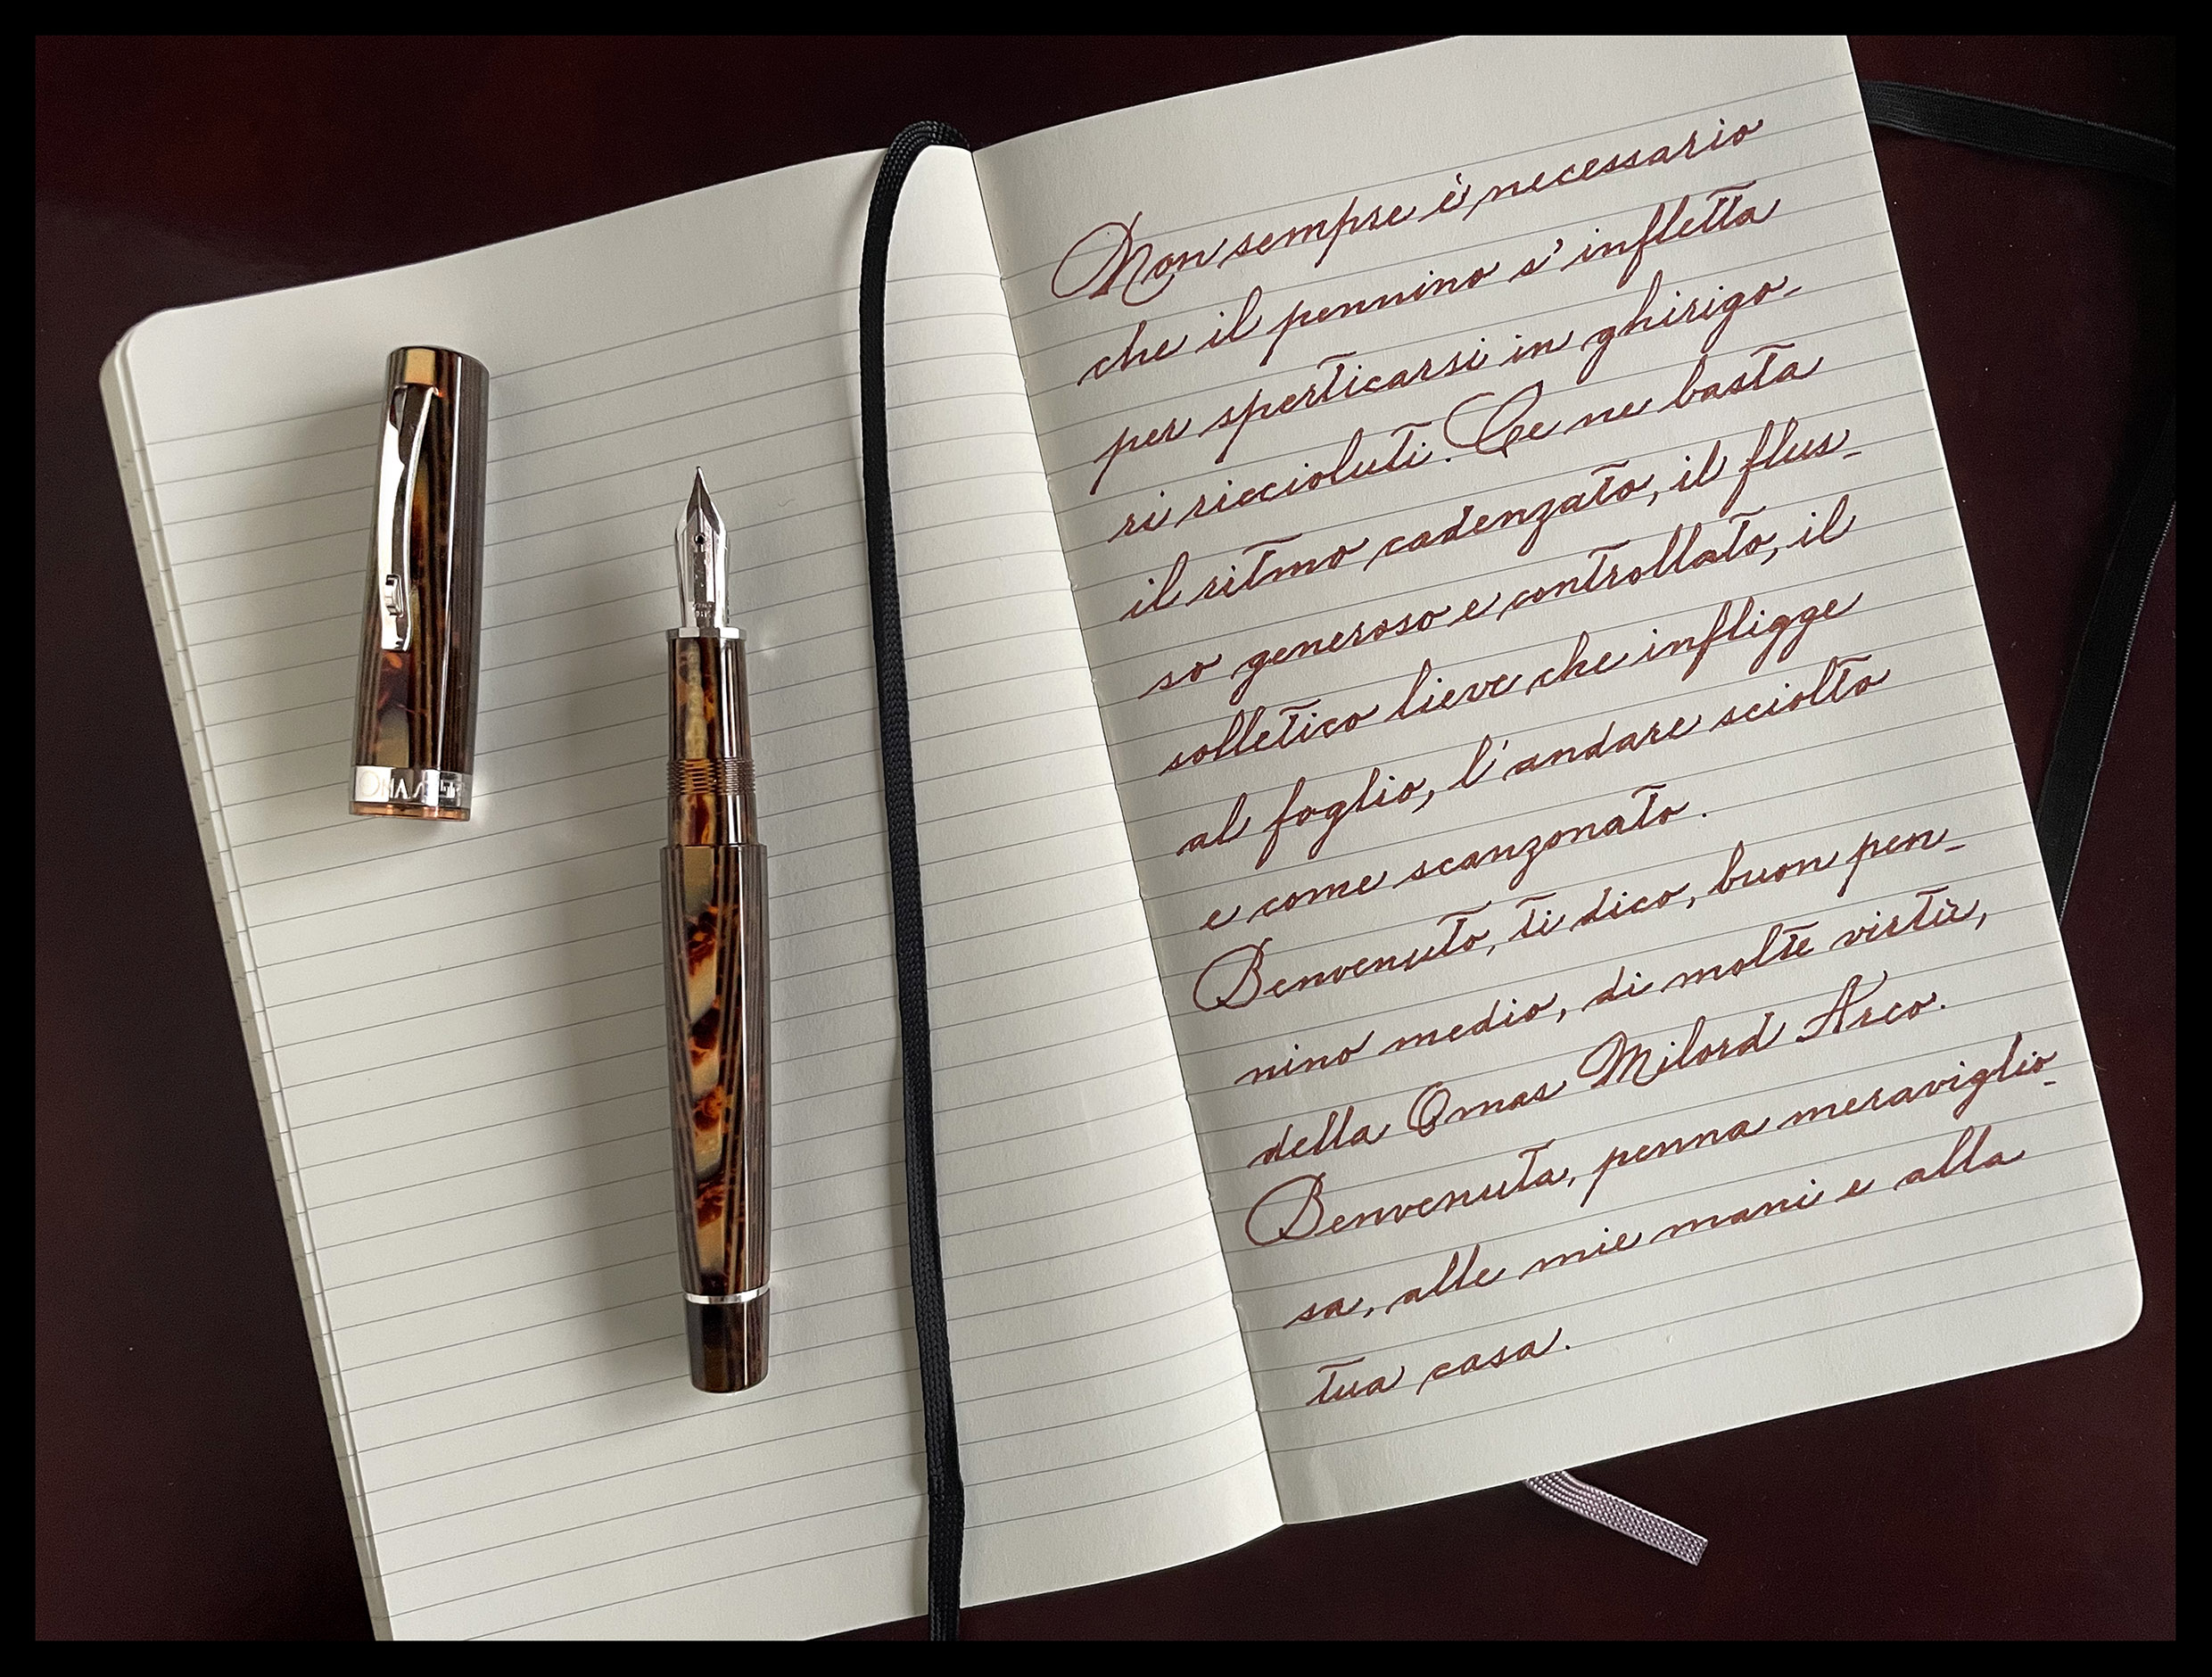 Non sempre è necessario
che il pennino s'infletta
per sperticarsi in ghirigo-
ri riccioluti. Ce ne basta
il ritmo cadenzato, il flus-
so generoso e controllato, il
solletico lieve che infligge
al foglio, l'andare sciolto
e come scanzonato.
Benvenuto, ti dico, buon pen-
nino medio, di molte virtù,
della Omas Milord Arco.
Benvenuta, penna meraviglio-
sa, alle mie mani e alla
tua casa.